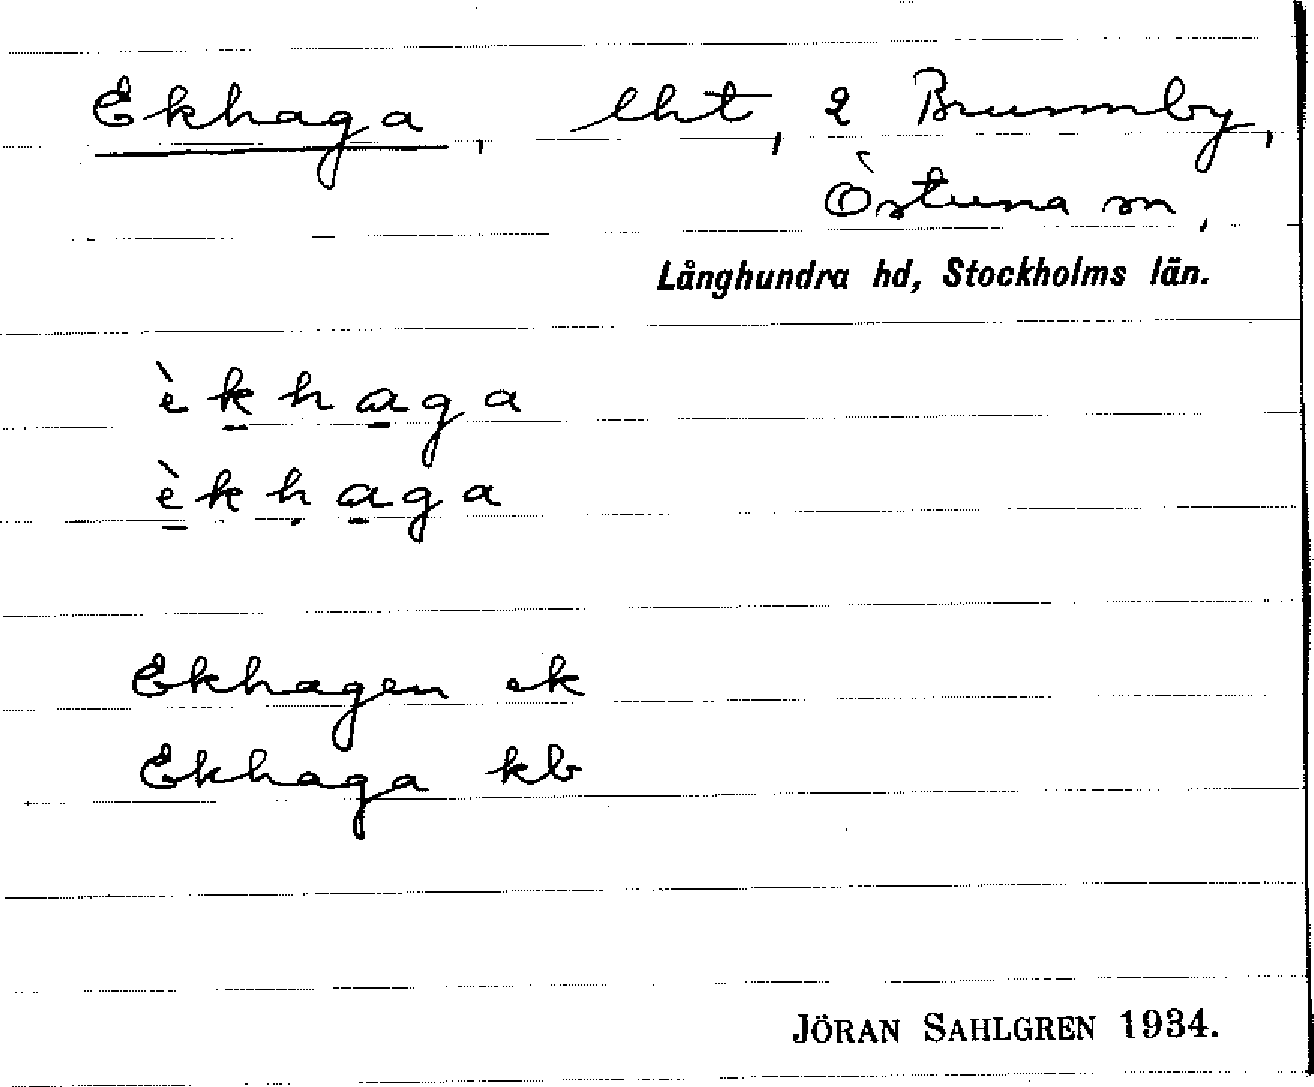 Ekhaga, lht, 2 Brunnby,
Östuna sn,
Långhundra hd, Stockholms län.
èkhaga
èkhaga
Ekhagen ek
Ekhaga kb
JÖRAN SAHLGREN 1934.